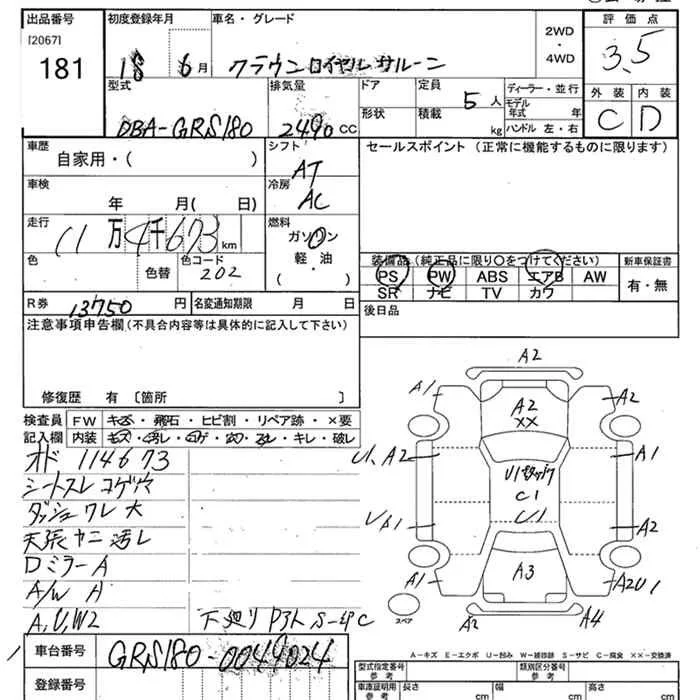 出品番号 初度登録年月 車名・グレード 2WD・4WD 評価点
[2067]
181 18 6月 クラウンロイヤルサルーン 3.5
型式 排気量 ドア 定員 5人 ディーラー・並行 外装 内装
DBA-GRS180 2490 CC 形状 積載 kg モデル年式 年 C D
ハンドル 左・右
車歴 シフト セールスポイント (正常に機能するものに限ります)
自家用・( ) AT
車検 冷房
年 月( 日) AC
走行 燃料
11万4千673km ガソリン
色 色替 色コード 軽・油
202 ( )
装備品 (純正品に限り○をつけてください) 新車保証書
PS PW ABS エアB AW 有・無
SR ナビ TV カワ
R券 13750円 名変通知期限 月 日 後日品
注意事項申告欄 (不具合内容等は具体的に記入して下さい)
修復歴 有 〔箇所 〕
検査員 FW キズ・飛石・ヒビ割・リペア跡・×要
記入欄 内装 キズ・汚レ・コゲ・穴・スレ・キレ・破レ
オド 114673
シートスレ コゲ穴
ダッシュ ワレ 大
天張 ヤニ 汚レ
Dミラー A
A/W A
A,U,W2 下廻り P3ト S-錆C
A2
A1 A2 A2
XX
U1、A2 A1
C1
U1
UA1 A2
A1 A3 A2U1
スペア A2 A4
A-キズ E-エクボ U-凹み W-補修跡 S-サビ C-腐食 XX-交換済
車台番号 GRS180-0049024
登録番号
型式指定番号 類別区分番号
車庫証明用 長さ cm 幅 cm 高さ cm